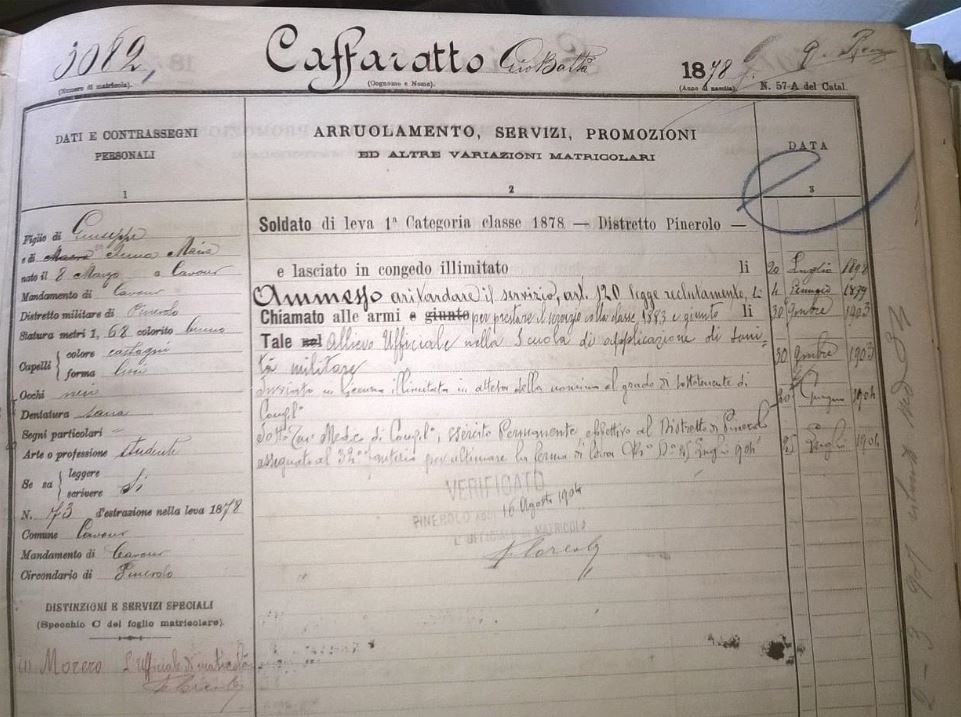 3082,
Caffaratto Gio Batta
1878
(Numero di matricola).
(Cognome e Nome).
(Anno di nascita).
N. 57-A del Catal.
DATI E CONTRASSEGNI
PERSONALI
ARRUOLAMENTO, SERVIZI, PROMOZIONI
ED ALTRE VARIAZIONI MATRICOLARI
DATA
1
2
3
Figlio di Giuseppe
e di Anna Maria
nato il 8 Marzo a Cavour
Mandamento di Cavour
Distretto militare di Pinerolo
Statura metri 1, 68 colorito bruno
Capelli { colore castagni
forma lisci
Occhi neri
Dentatura sana
Segni particolari –
Arte o professione studente
Se sa { leggere
scrivere si
N. 73 d'estrazione nella leva 1878
Comune Cavour
Mandamento di Cavour
Circondario di Pinerolo
DISTINZIONI E SERVIZI SPECIALI
(Specchio C del foglio matricolare).
(1) Morero L'ufficiale di matricola
Soldato di leva 1ª Categoria classe 1878 — Distretto Pinerolo —
e lasciato in congedo illimitato li 20 Luglio 1898
Ammesso a ritardare il servizio, art. 120 legge reclutamento, li 4 Gennaio 1899
Chiamato alle armi e giunto per prestare il servizio colla classe 1883 e giunto li 30 9mbre 1903
Tale nel Allievo Ufficiale nella Scuola di applicazione di Sani-
tà militare 30 9mbre 1903
Inviato in licenza illimitata in attesa della nomina al grado di sottotenente di
Compl° Giugno 1904
Sotto Ten° Medico di Compl°, Esercito Permanente effettivo al Distretto di Pinerolo
assegnato al 32° fanteria per ultimare la ferma di leva Luglio 904 Luglio 1904
VERIFICATO
PINEROLO 16 Agosto 1904
L'UFFICIALE MATRICOLA